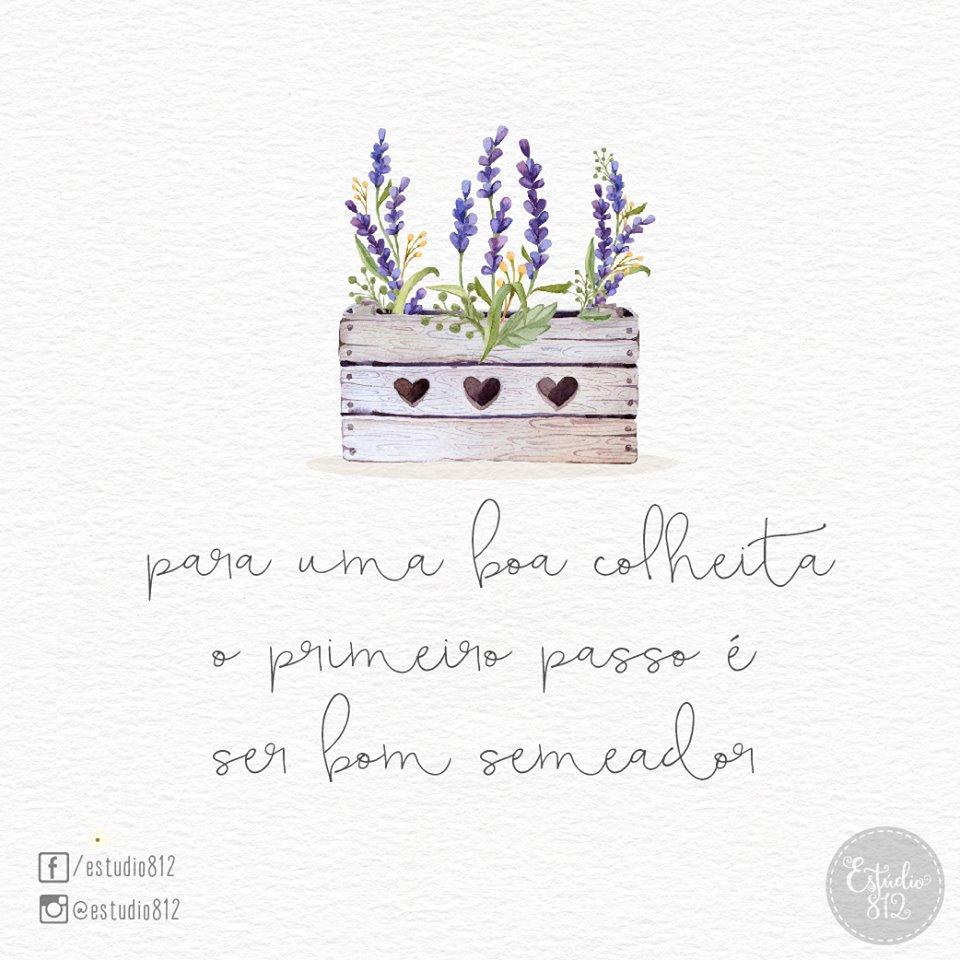 para uma boa colheita
o primeiro passo é
ser bom semeador
/estudio812
@estudio812
Estúdio
812